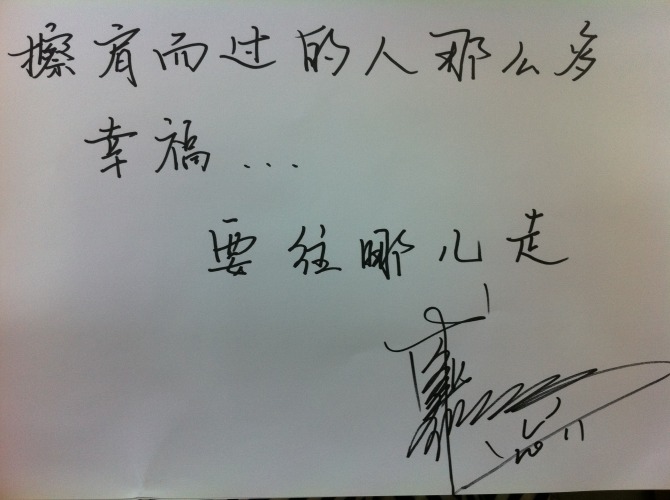 擦肩而过的人那么多
幸福...
要往哪儿走